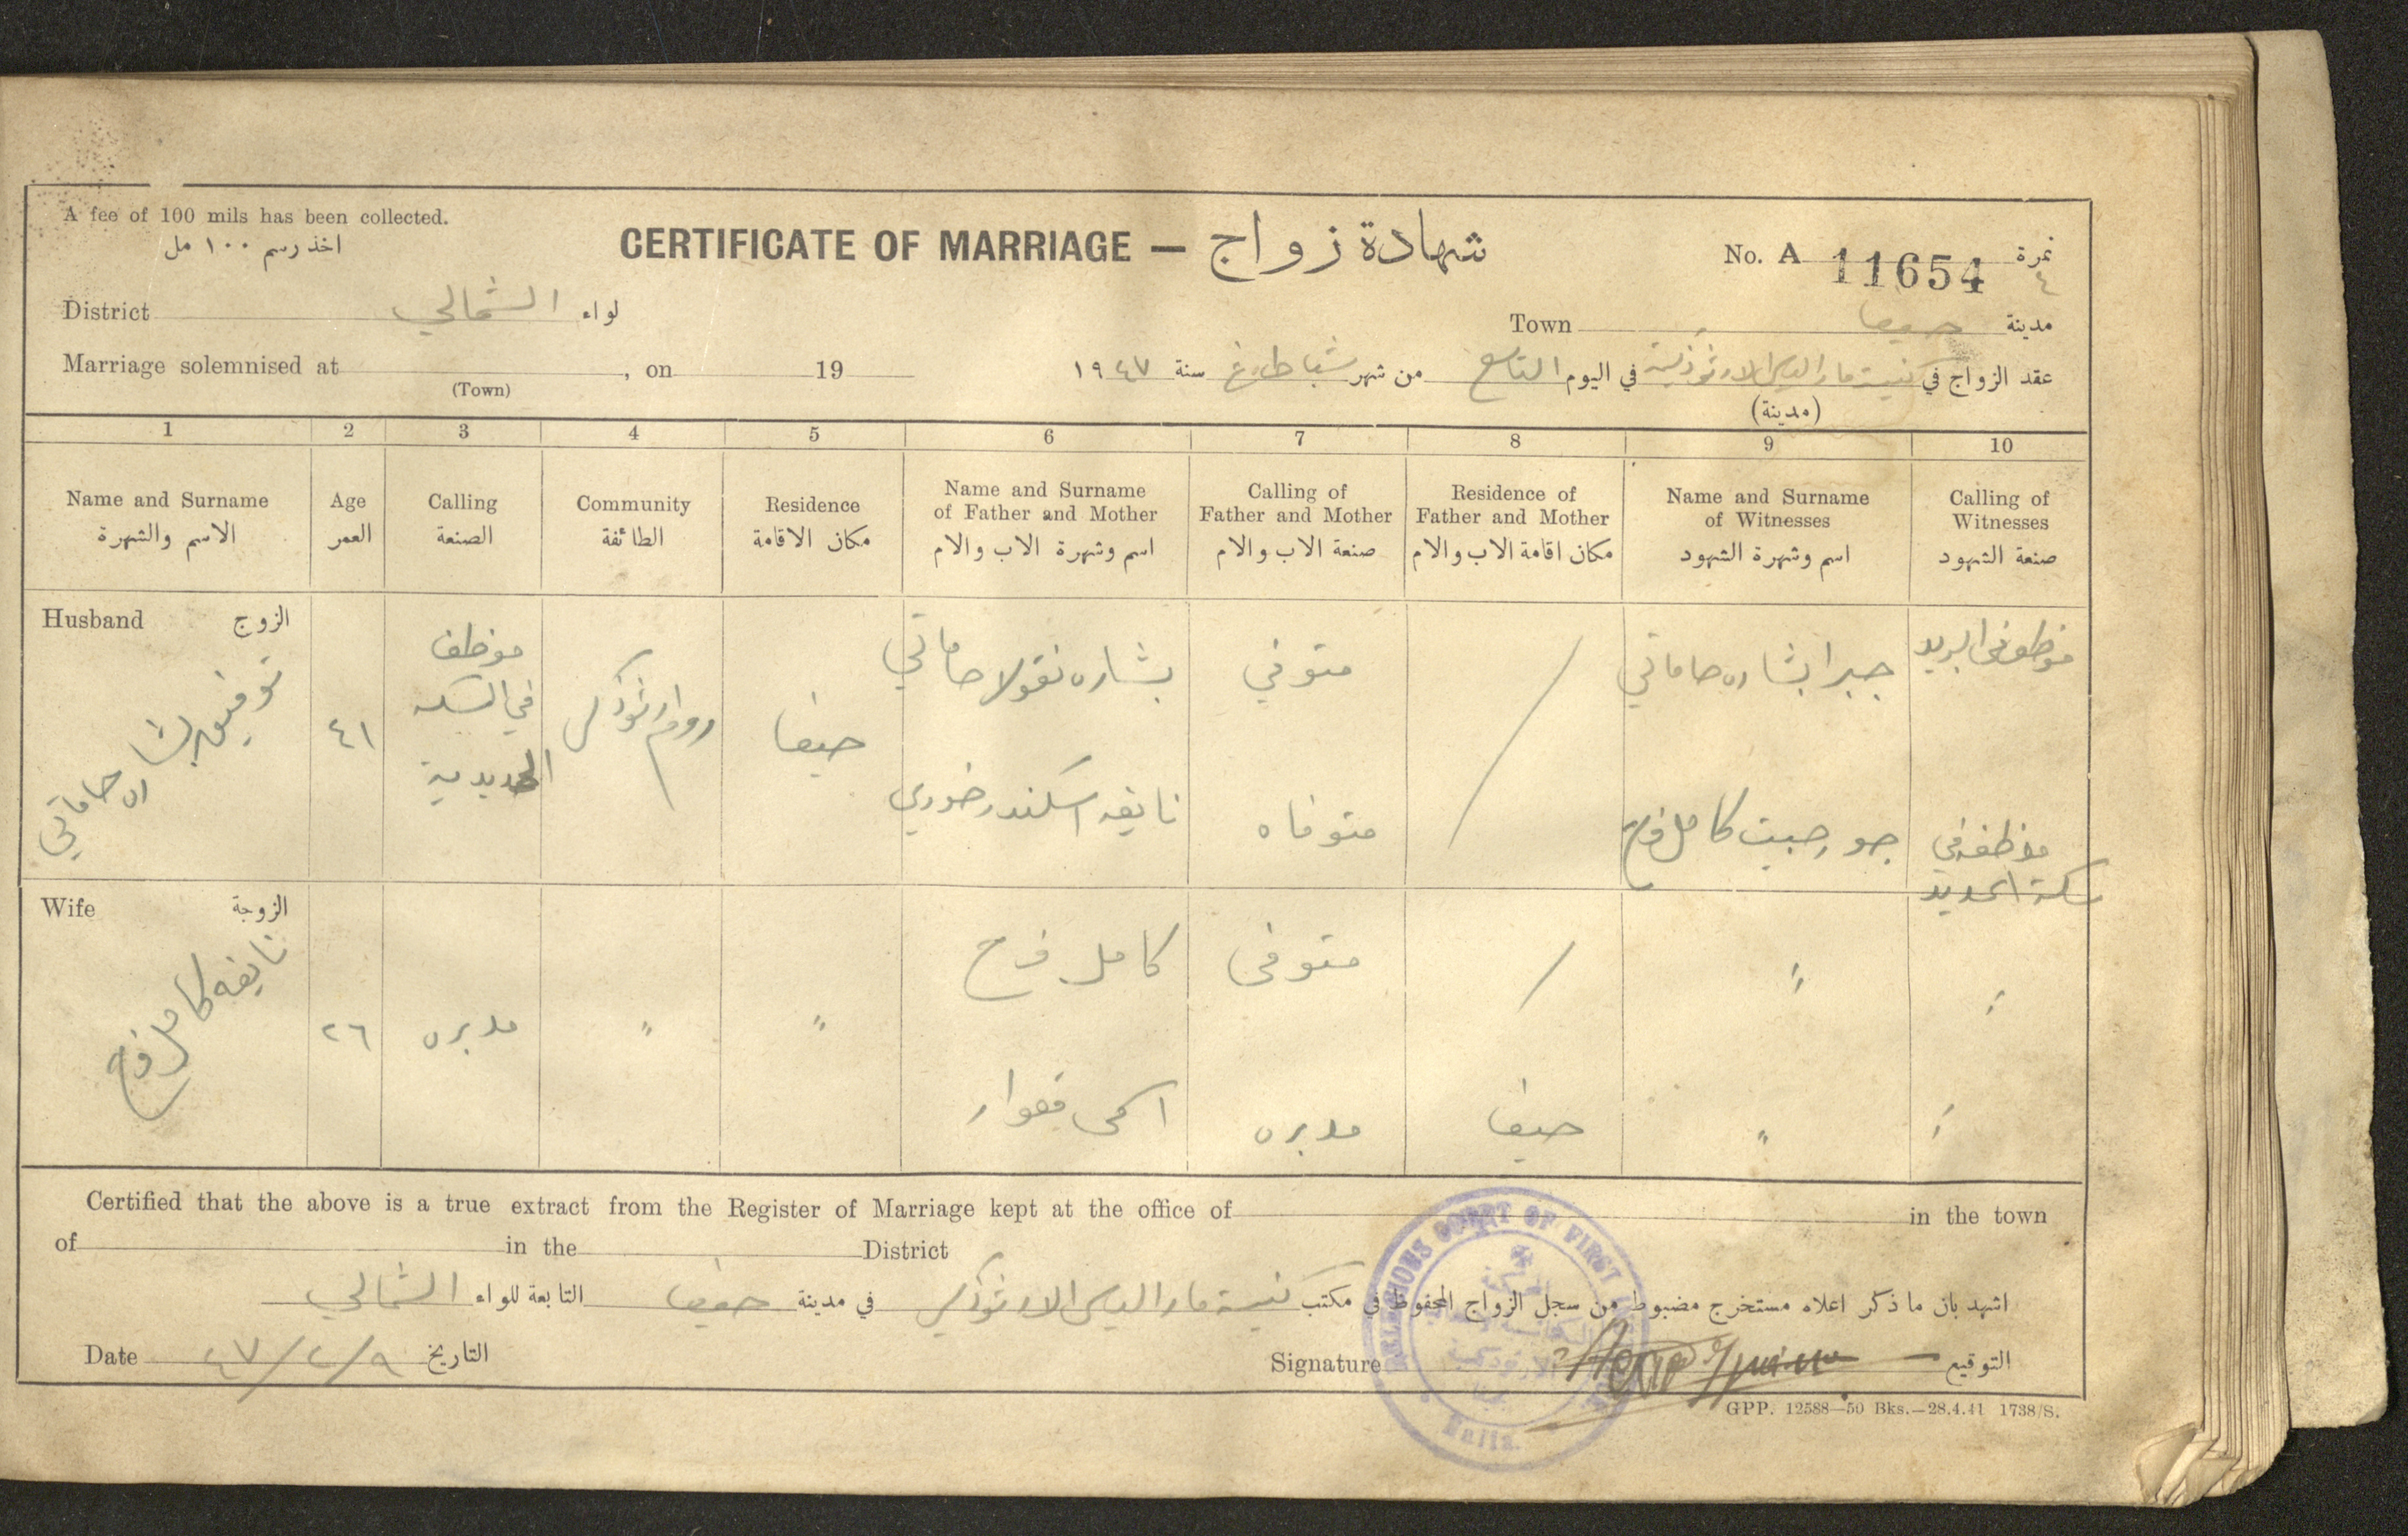 A fee of 100 mils has been collected.
اخذ رسم ١٠٠ مل
CERTIFICATE OF MARRIAGE — شهادة زواج
No. A 11654 نمرة
٤
District الشمالي لواء
Town حيفا مدينة
Marriage solemnised at , on 19
(Town)
عقد الزواج في كنيسة مار الياس الارثوذكسية في اليوم التاسع من شهر شباط سنة ١٩٤٧
(مدينة)
1 2 3 4 5 6 7 8 9 10
Name and Surname
الاسم والشهرة
Age
العمر
Calling
الصنعة
Community
الطائفة
Residence
مكان الاقامة
Name and Surname
of Father and Mother
اسم وشهرة الاب والام
Calling of
Father and Mother
صنعة الاب والام
Residence of
Father and Mother
مكان اقامة الاب والام
Name and Surname
of Witnesses
اسم وشهرة الشهود
Calling of
Witnesses
صنعة الشهود
Husband الزوج
توفيق بشاره حاماتي
٤١
موظف
في السكه
الحديدية
روم ارثوذكس
حيفا
بشاره نقولا حاماتي
نايفه اسكندر خوري
متوفي
متوفاه
/
جبرا بشاره حاماتي
جورجيت كامل فرح
موظف في البريد
موظفه في
سكة الحديد
Wife الزوجة
نايفه كامل فرح
٢٦
مدبره
"
"
كامل فرح
اسمى قعوار
متوفى
مدبره
/
حيفا
"
"
"
"
Certified that the above is a true extract from the Register of Marriage kept at the office of in the town
of in the District
اشهد بان ما ذكر اعلاه مستخرج مضبوط من سجل الزواج المحفوظ في مكتب كنيسة مار الياس الارثوذكس في مدينة حيفا التابعة للواء الشمالي
Date ٤٧/٢/٩ التاريخ
Signature التوقيع
RELIGIOUS COURT OF FIRST
Haifa.
GPP. 12588—50 Bks.—28.4.41 1738/S.